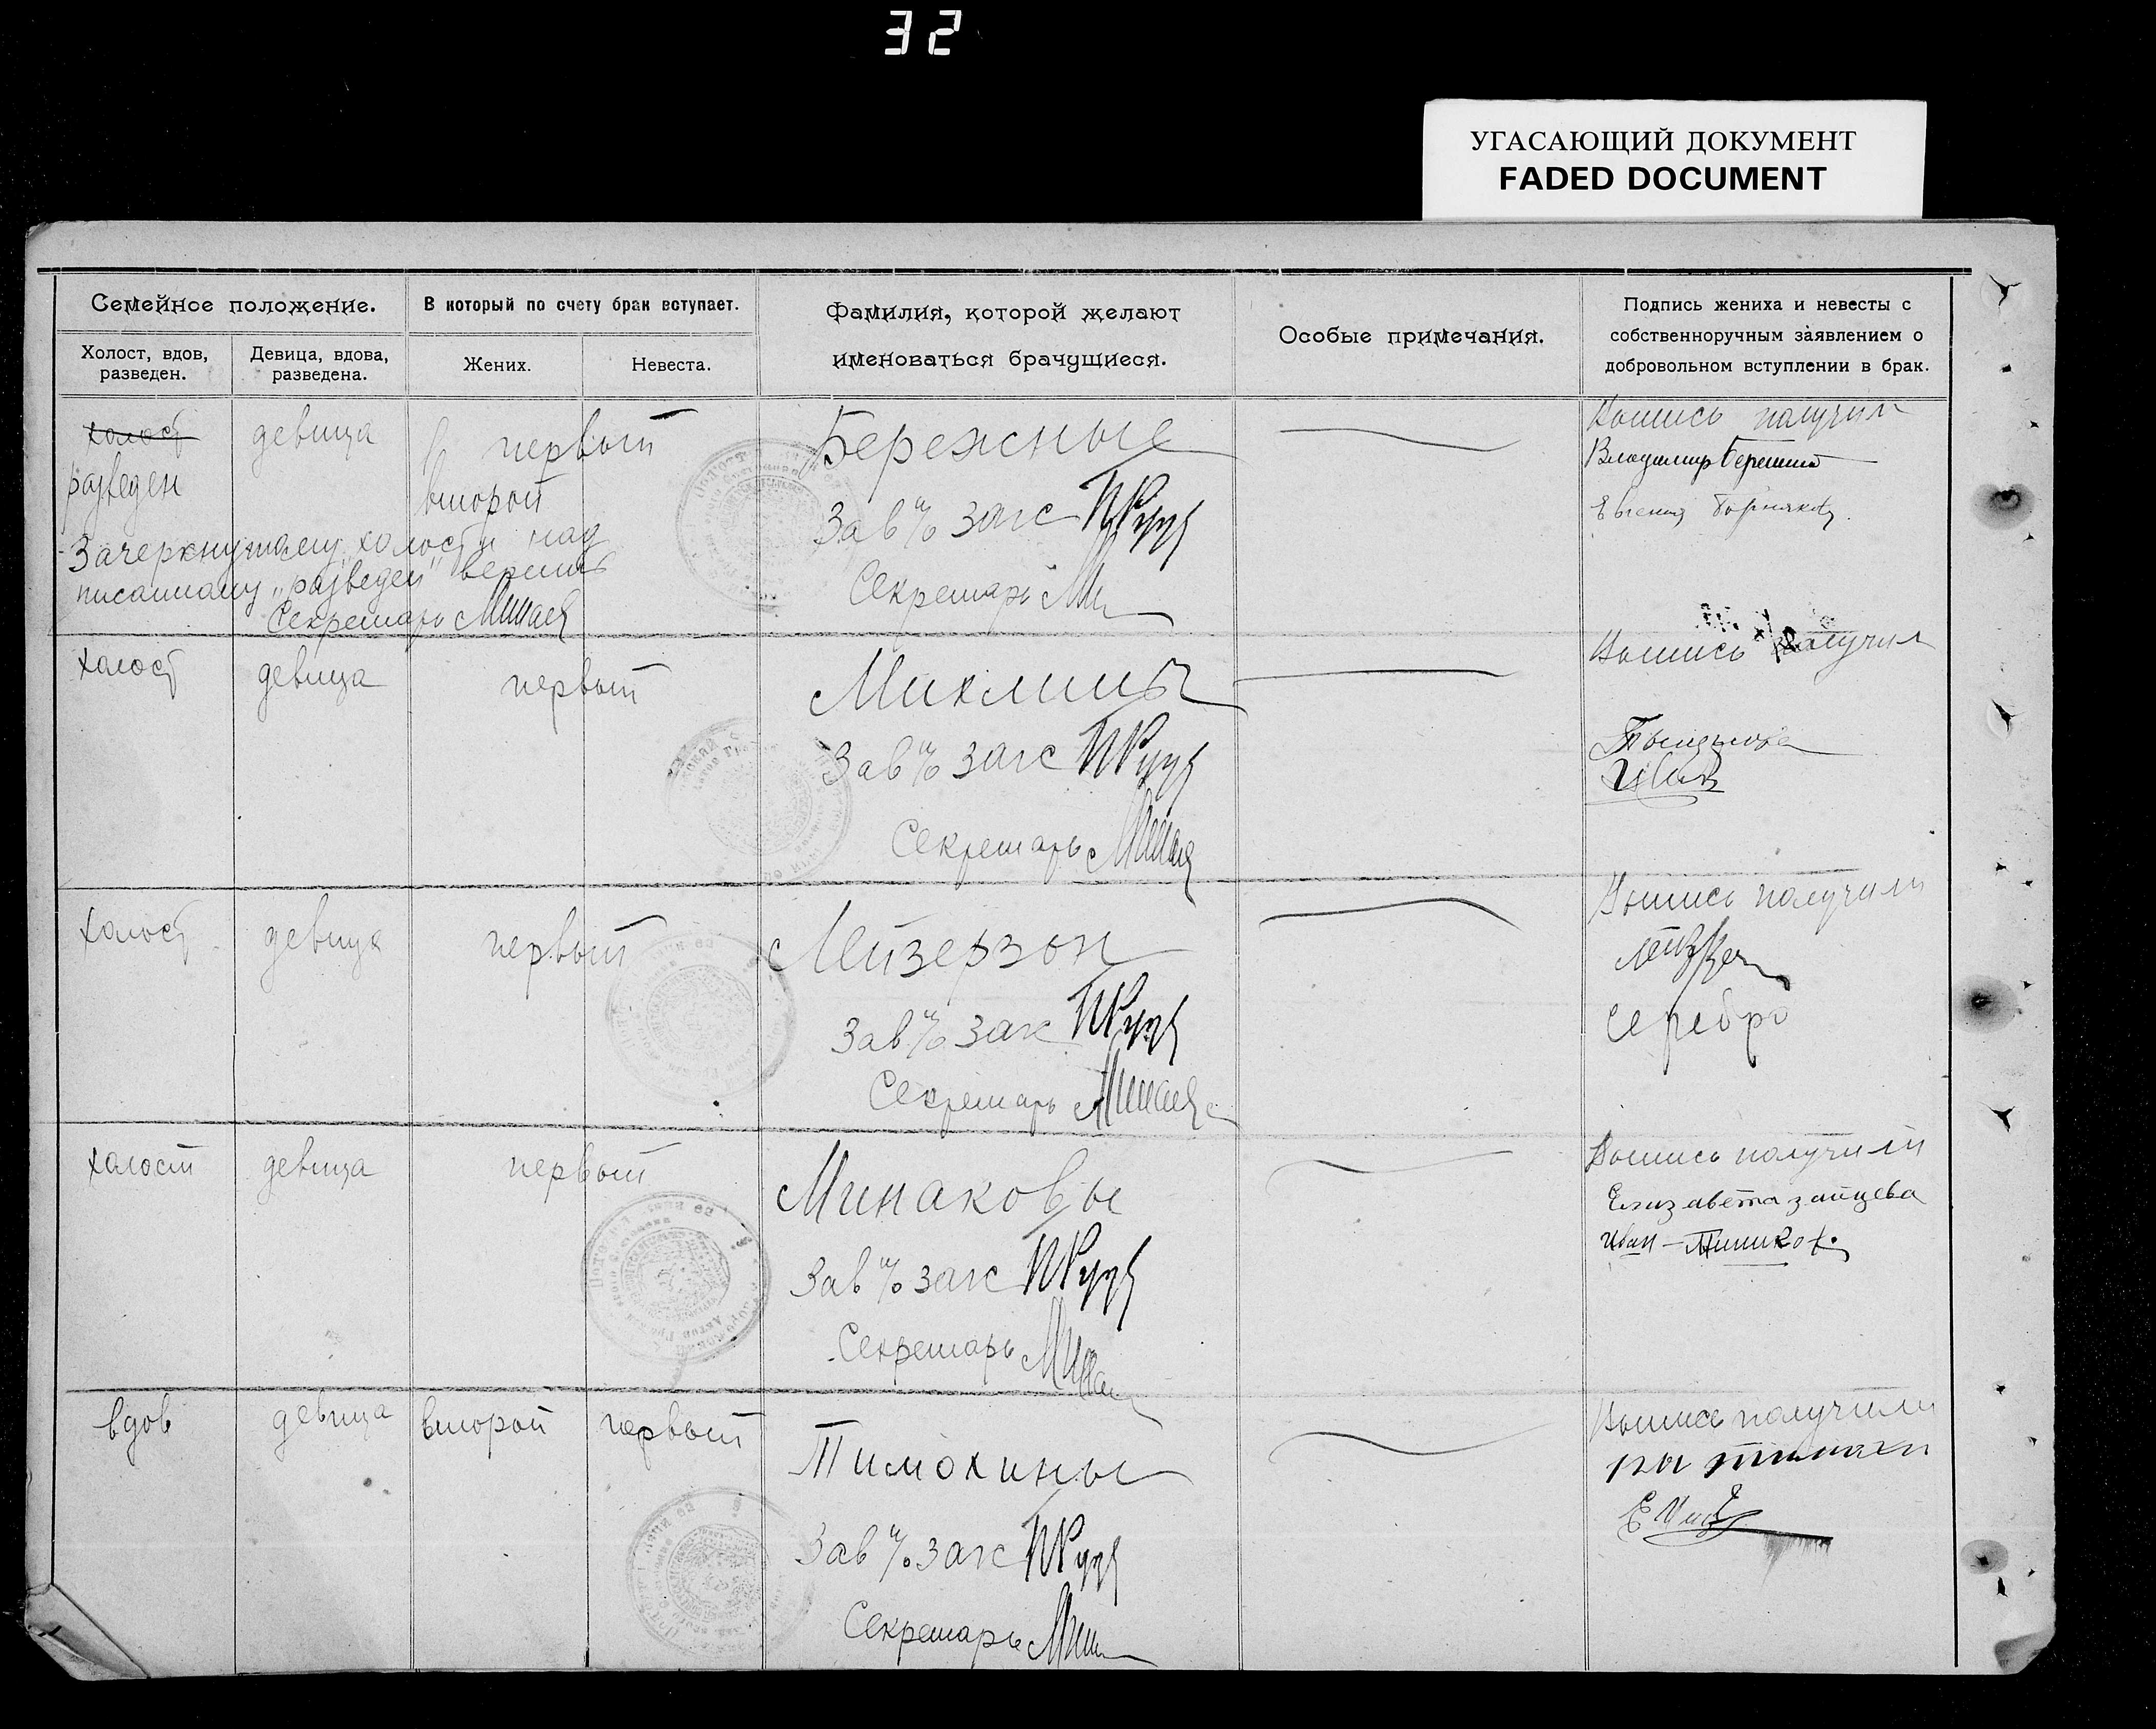 32
УГАСАЮЩИЙ ДОКУМЕНТ
FADED DOCUMENT
Семейное положение.
В который по счету брак вступает.
Фамилия, которой желают
именоваться брачущиеся.
Особые примечания.
Подпись жениха и невесты с
собственноручным заявлением о
добровольном вступлении в брак.
Холост, вдов,
разведен.
Девица, вдова,
разведена.
Жених.
Невеста.
холост
разведен
девица
первый
второй
Зачеркнутому холост и над
писанному „разведен" верить
Секретарь Минаев
Бережные
Зав п/о загс
Секретарь
Выпись получил
Владимир Бережный
Евгения
холост
девица
первый
Михлины
Зав п/о загс
Секретарь Минаев
Выпись получил
холост
девица
первый
Мейзерзон
Зав п/о загс
Секретарь Минаев
Выпись получили
Серебро
холост
девица
первый
Минаковы
Зав п/о загс
Секретарь Минаев
Выпись получили
Елизавета Зайцева
Иван Минаков
вдов
девица
второй
первый
Тимохины
Зав п/о загс
Секретарь
Выпись получили